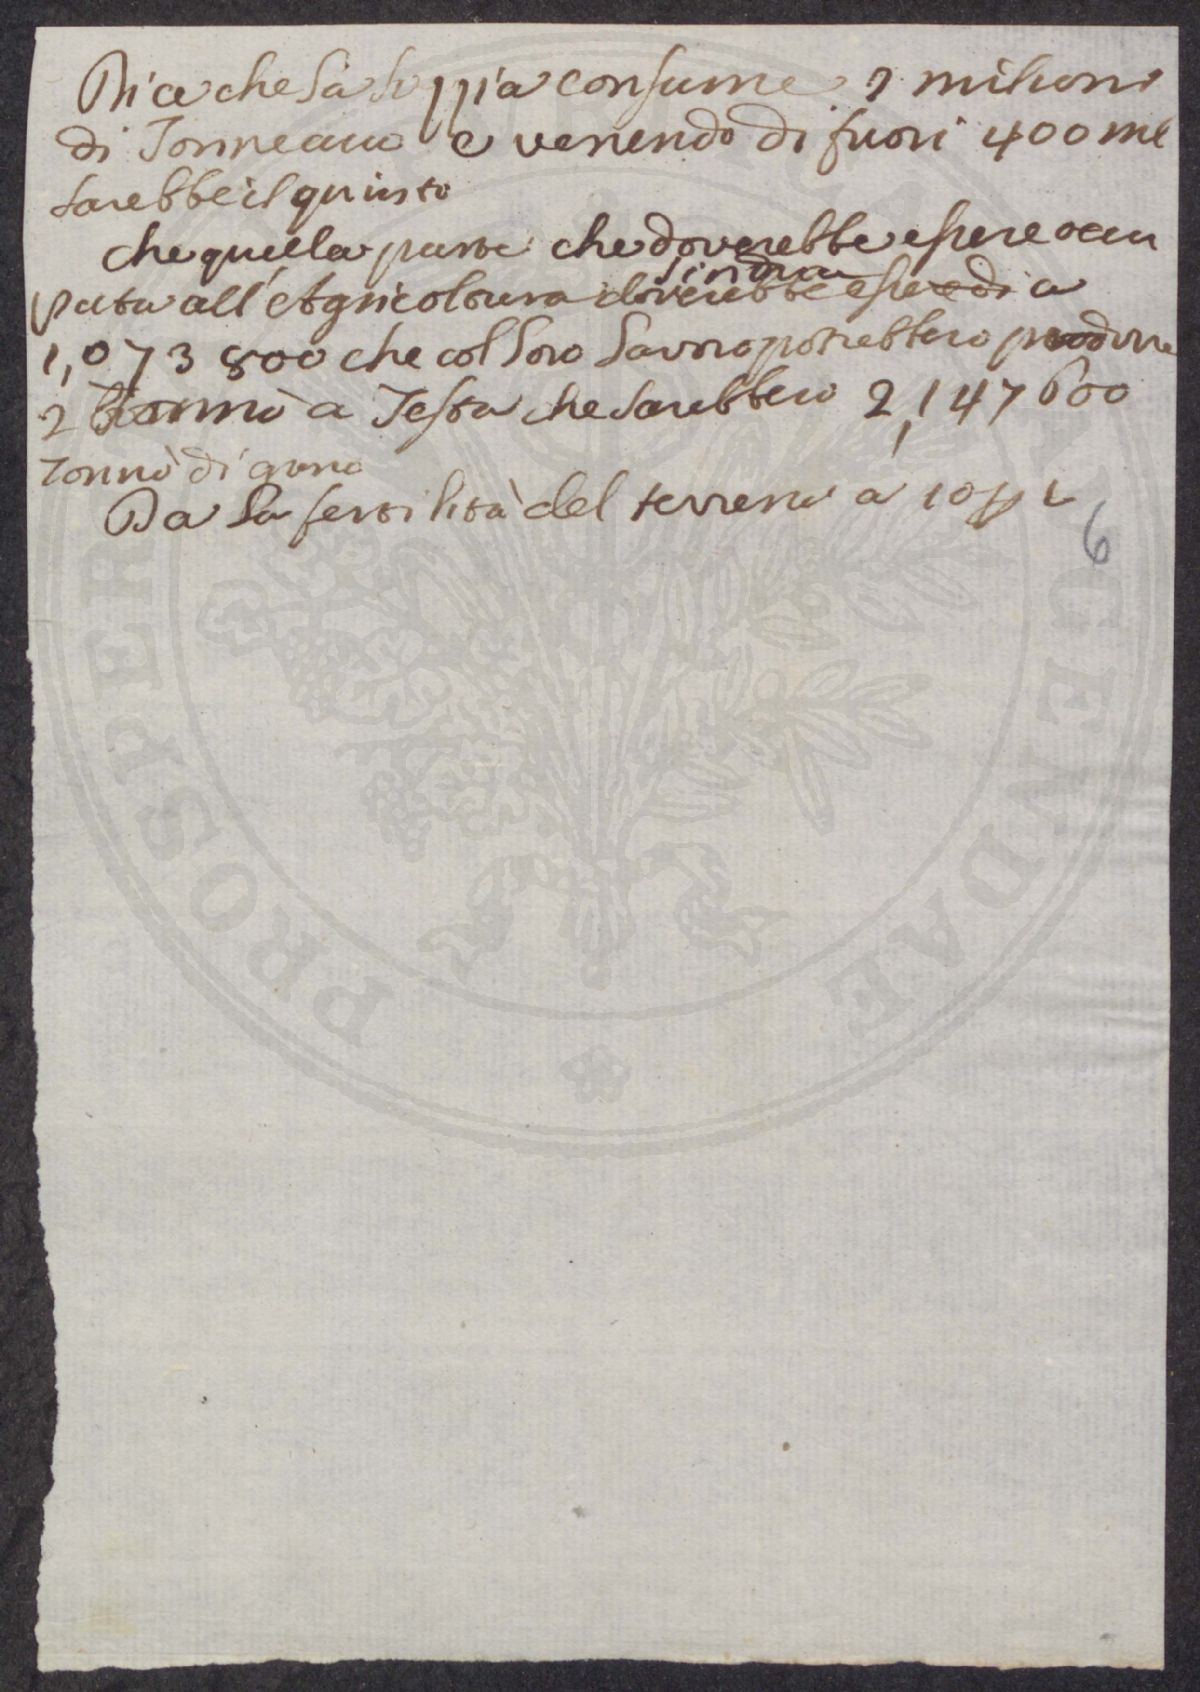 Dice che la consume 2 milioni
di Tonneaux e venendo di fuori 400 mil
sarebbe il quinto
che quella parte che doverebbe essere occu
pata all'Agricoltura doverebbe essere di a
si riduca
1,073 800 che col loro lavoro potrebbero produrre
2 tonnò a Testa che sarebbero 2,147 600
Tonnò di grano
Da la fertilità del terreno a 10 p 1
6
PROSPER AUGENDAE